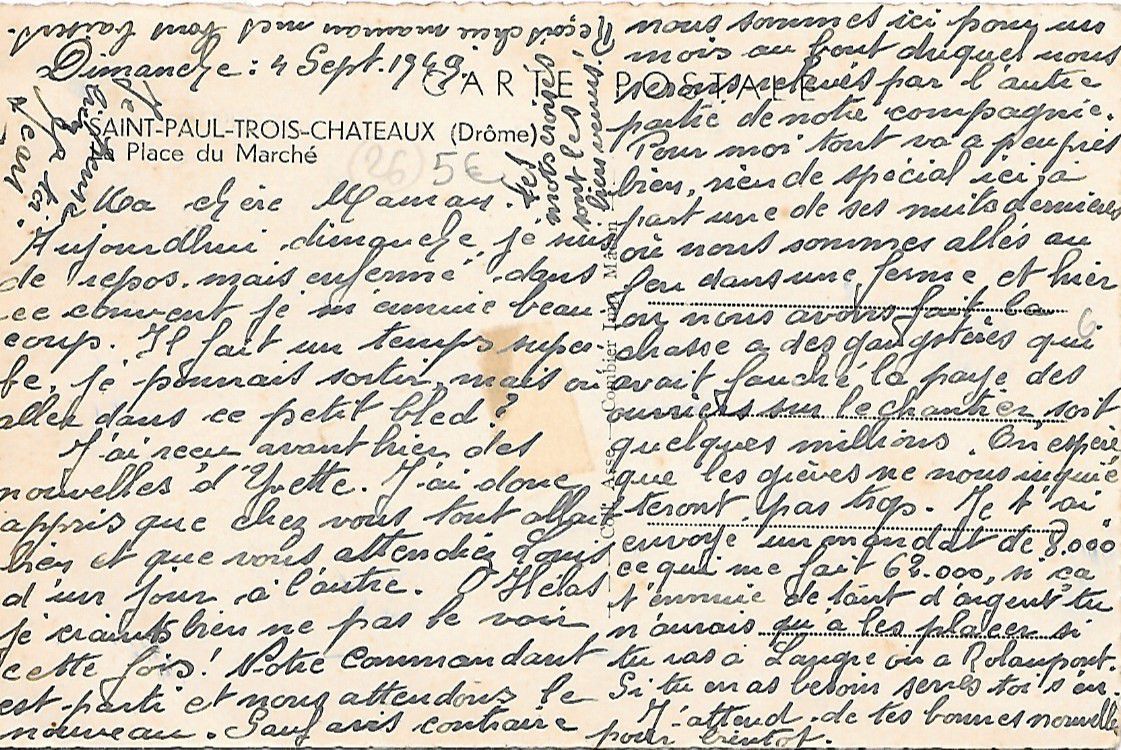 Dimanche : 4 Sept. 1949.
CARTE POSTALE
SAINT-PAUL-TROIS-CHATEAUX (Drôme)
La Place du Marché
(26) 5€
Ma chère Maman.
Aujourdhui dimanche, je suis
de repos, mais enfermé dans
ce couvent je m'ennuie beau-
coup. Il fait un temps super-
be, je pourrais sortir, mais ou
aller dans ce petit bled?
J'ai reçu avant hier des
nouvelles d'Yvette. J'ai donc
appris que chez vous tout allai
bien et que vous attendiez Louis
d'un jour à l'autre. Hélas
je crains bien ne pas le voir
cette fois! Notre commandant
est parti et nous attendons le
nouveau. Sauf avis contraire
nous sommes ici pour un
mois au bout duquel nous
serons relevés par l'autre
partie de notre compagnie.
Pour moi tout va a peu près
bien, rien de spécial ici, à
part une de ses nuits dernières
où nous sommes allés au
feu dans une ferme et hier
ou nous avons fait la
chasse a des gangstères qui
avait fauché la paye des
ouvriers sur le chantier, soit
quelques millions. On espère
que les grèves ne nous inquiè
teront pas trop. Je t'ai
envoyé un mandat de 8.000
ce qui me fait 62.000, si ça
t'ennuie de tant d'argent tu
n'aurais qu'à les placer si
tu vas à Langre ou a Rolampont.
Si tu en as besoin serres toi s'en.
J'attend de tes bonnes nouvelle
pour bientôt.
Reçois chère maman mes bons baisers.
sont les
bienvenus!
6